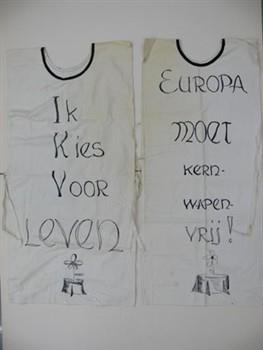 Ik
Kies
Voor
Leven
EUROPA
MOET
KERN-
WAPEN-
VRIJ!